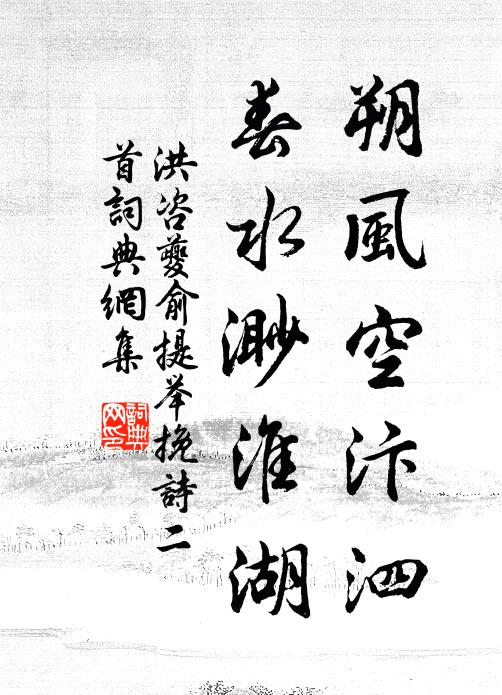 朔風空汴泗
春水渺淮湖
洪咨夔俞提举挽詩二
首詞典網集
詞典网印